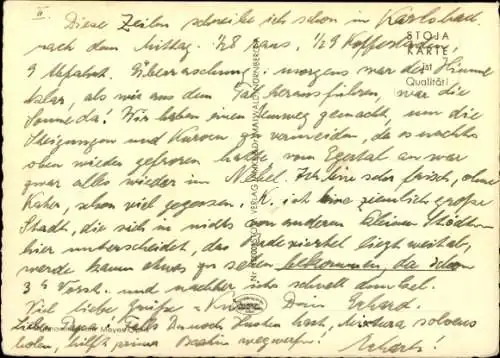 II
Diese Zeilen schreibe ich schon in Karlsbad
nach dem Mittag. 1/8 raus, 1/2 9 Kaffee
STOJA
KARTE
ist
Qualität!
9 Abfahrt. Überraschung: morgens war der Himmel
klar, als wir aus dem Tal herausfuhren, war die
Sonne da! Wir haben einen Umweg gemacht, um die
Steigungen und Kurven zu vermeiden, da es nachts
oben wieder gefroren hatte. vom Egertal an war
zwar alles wieder im Nebel. Ich bin sehr frisch, ohne
Kater, schon viel gegessen. K. ist eine ziemlich große
Stadt, die sich in nichts von anderen kleinen Städten
hier unterscheidet, das Badeviertel liegt weitab,
werde kaum etwas zu sehen bekommen, da schon
3 h Vorst. und nachher ists schnell dunkel.
Viel liebe Grüße Dein Erhard
Lieber Papa! Falls Du noch Husten hast, solvens
holen, hilft prima wegwerfen! Erhard!